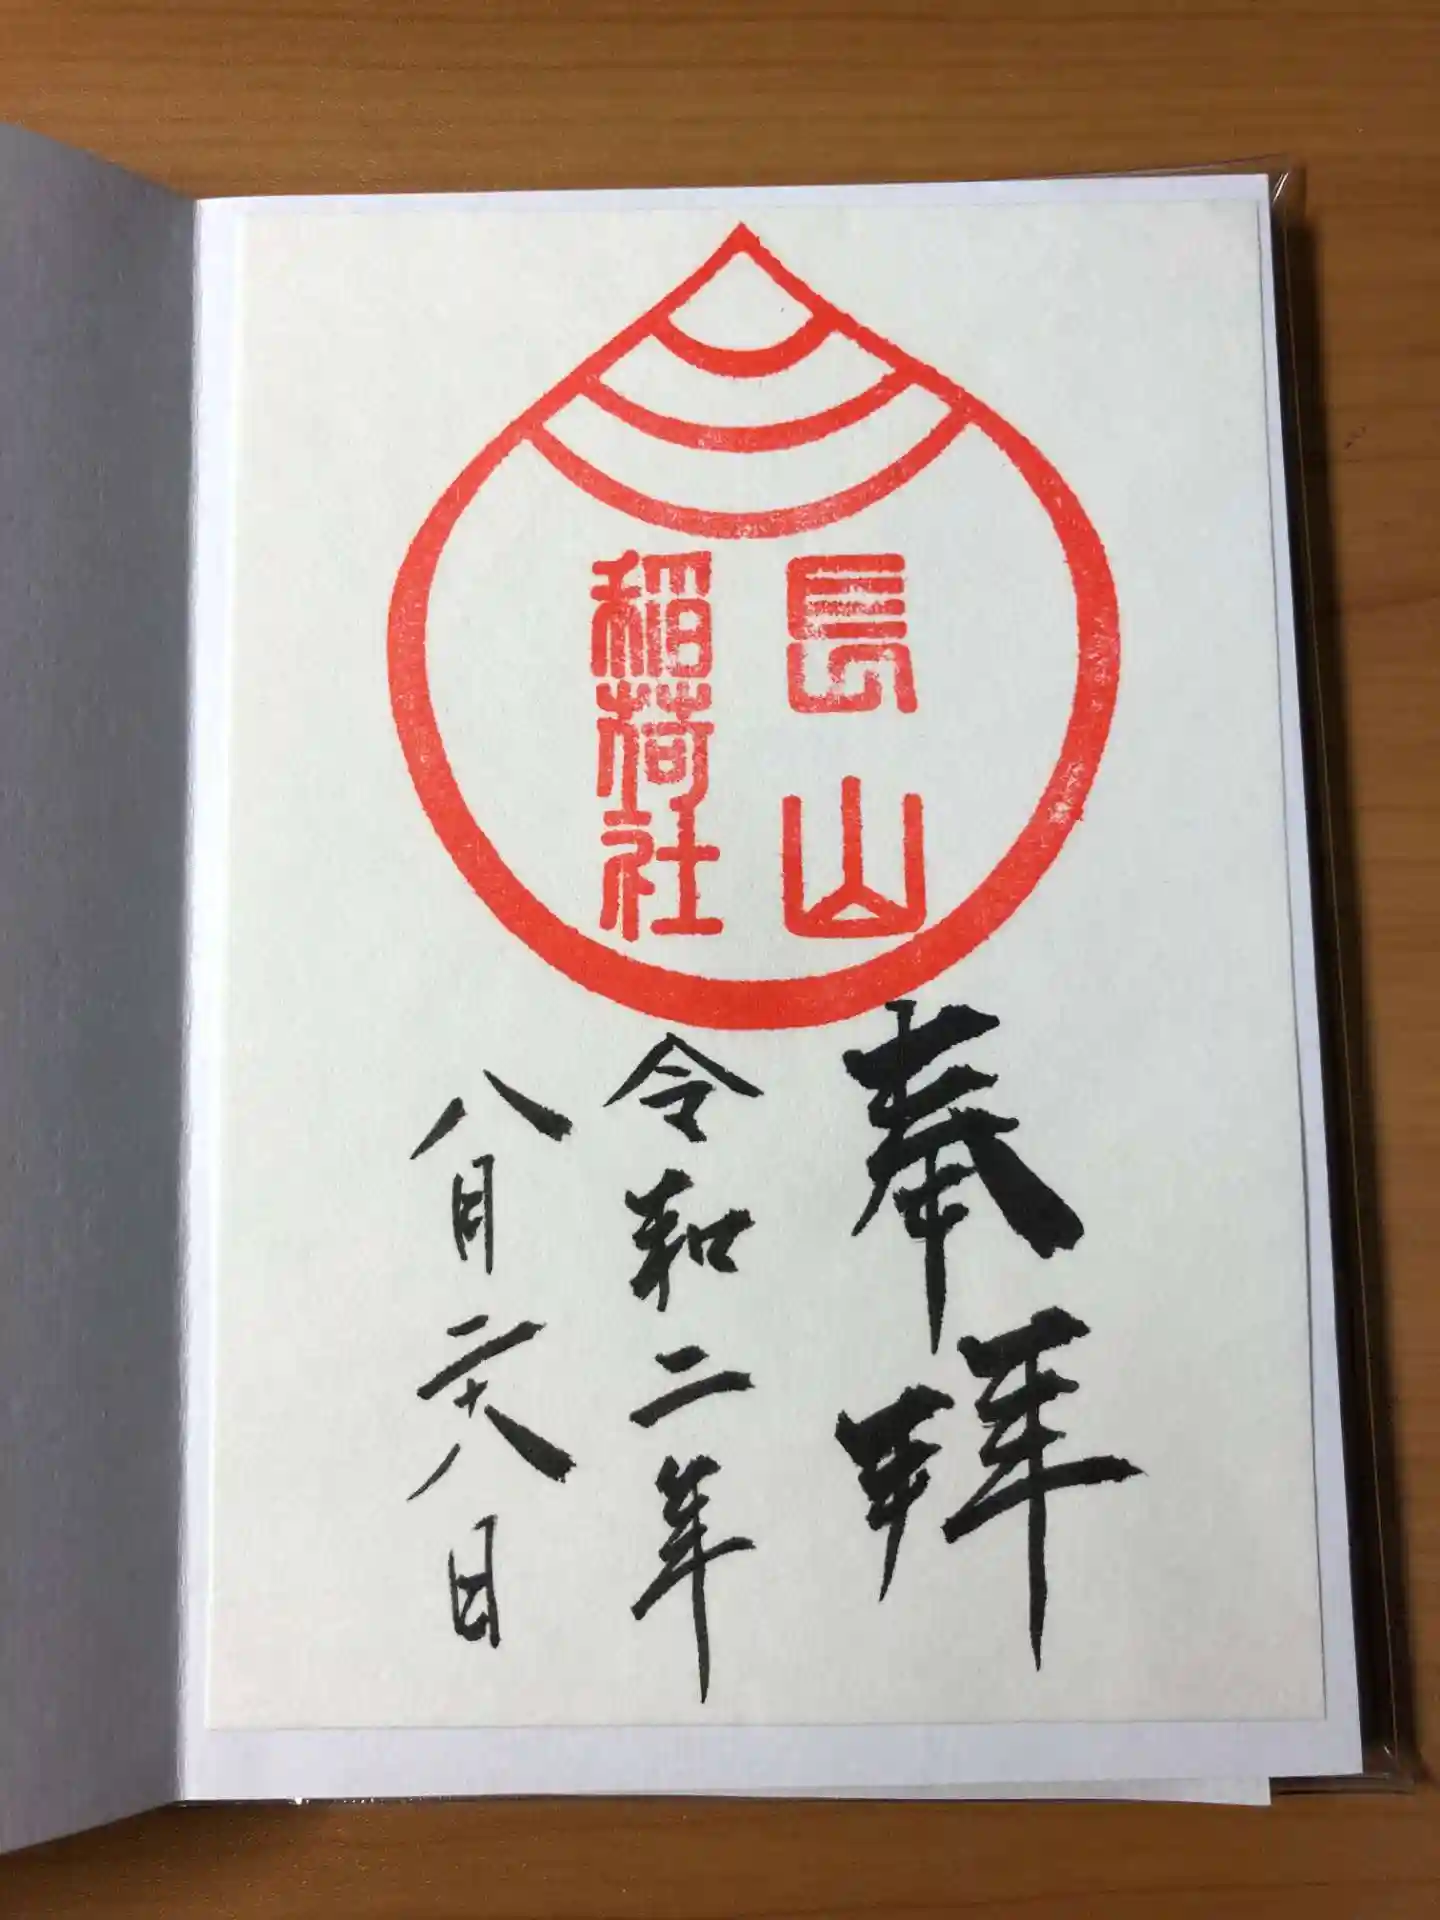 長山
稲荷社
奉拝
令和二年
八月二十八日